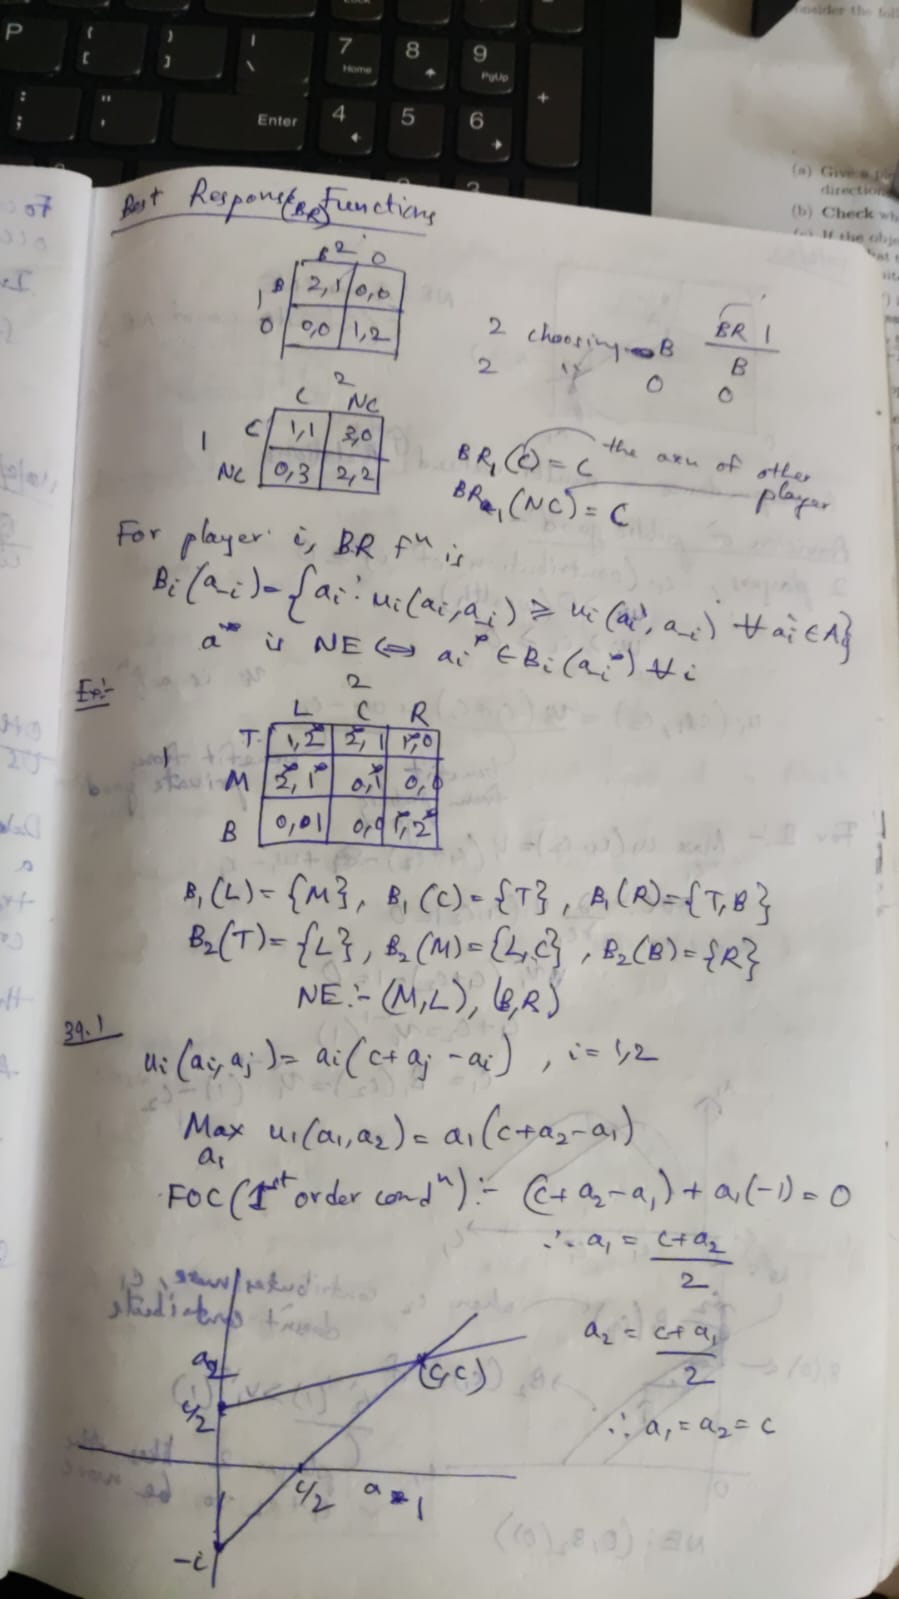 P
{
[
}
]
|
\
7
Home
8
9
PgUp
+
:
;
"
'
Enter
4
5
6
onsider the foll
(a) Give a
direction
(b) Check wh
If the obje
Best Response (BR) Functions
2
B O
1 B 2,1 0,0
O 0,0 1,2
BR 1
2 choosing B B
2 " O O
2
C NC
1 C 1,1 3,0
NC 0,3 2,2
BR₁(C) = C the axn of other player
BR₁(NC) = C
For player i, BR fⁿ is
Bi(a-i) = {ai : ui(ai, a-i) ≥ ui(ai', a-i) ∀ ai' ∈ Ai}
a* is NE ⟺ ai* ∈ Bi(a-i*) ∀ i
Ex:-
2
L C R
1
T 1,2* 2*,1 1*,0
M 2*,1* 0,1* 0,0
B 0,01 0,0 1*,2*
B₁(L) = {M}, B₁(C) = {T}, B₁(R) = {T,B}
B₂(T) = {L}, B₂(M) = {L,C}, B₂(B) = {R}
NE :- (M,L), (B,R)
39.1
ui(ai, aj) = ai(c + aj - ai), i = 1,2
Max u₁(a₁,a₂) = a₁(c+a₂-a₁)
a₁
FOC (1st order condⁿ) :- (c+a₂-a₁) + a₁(-1) = 0
∴ a₁ = c+a₂ / 2
a₂ = c+a₁ / 2
∴ a₁ = a₂ = c
a₂
(c,c)
c/2
c/2
a 1
-i